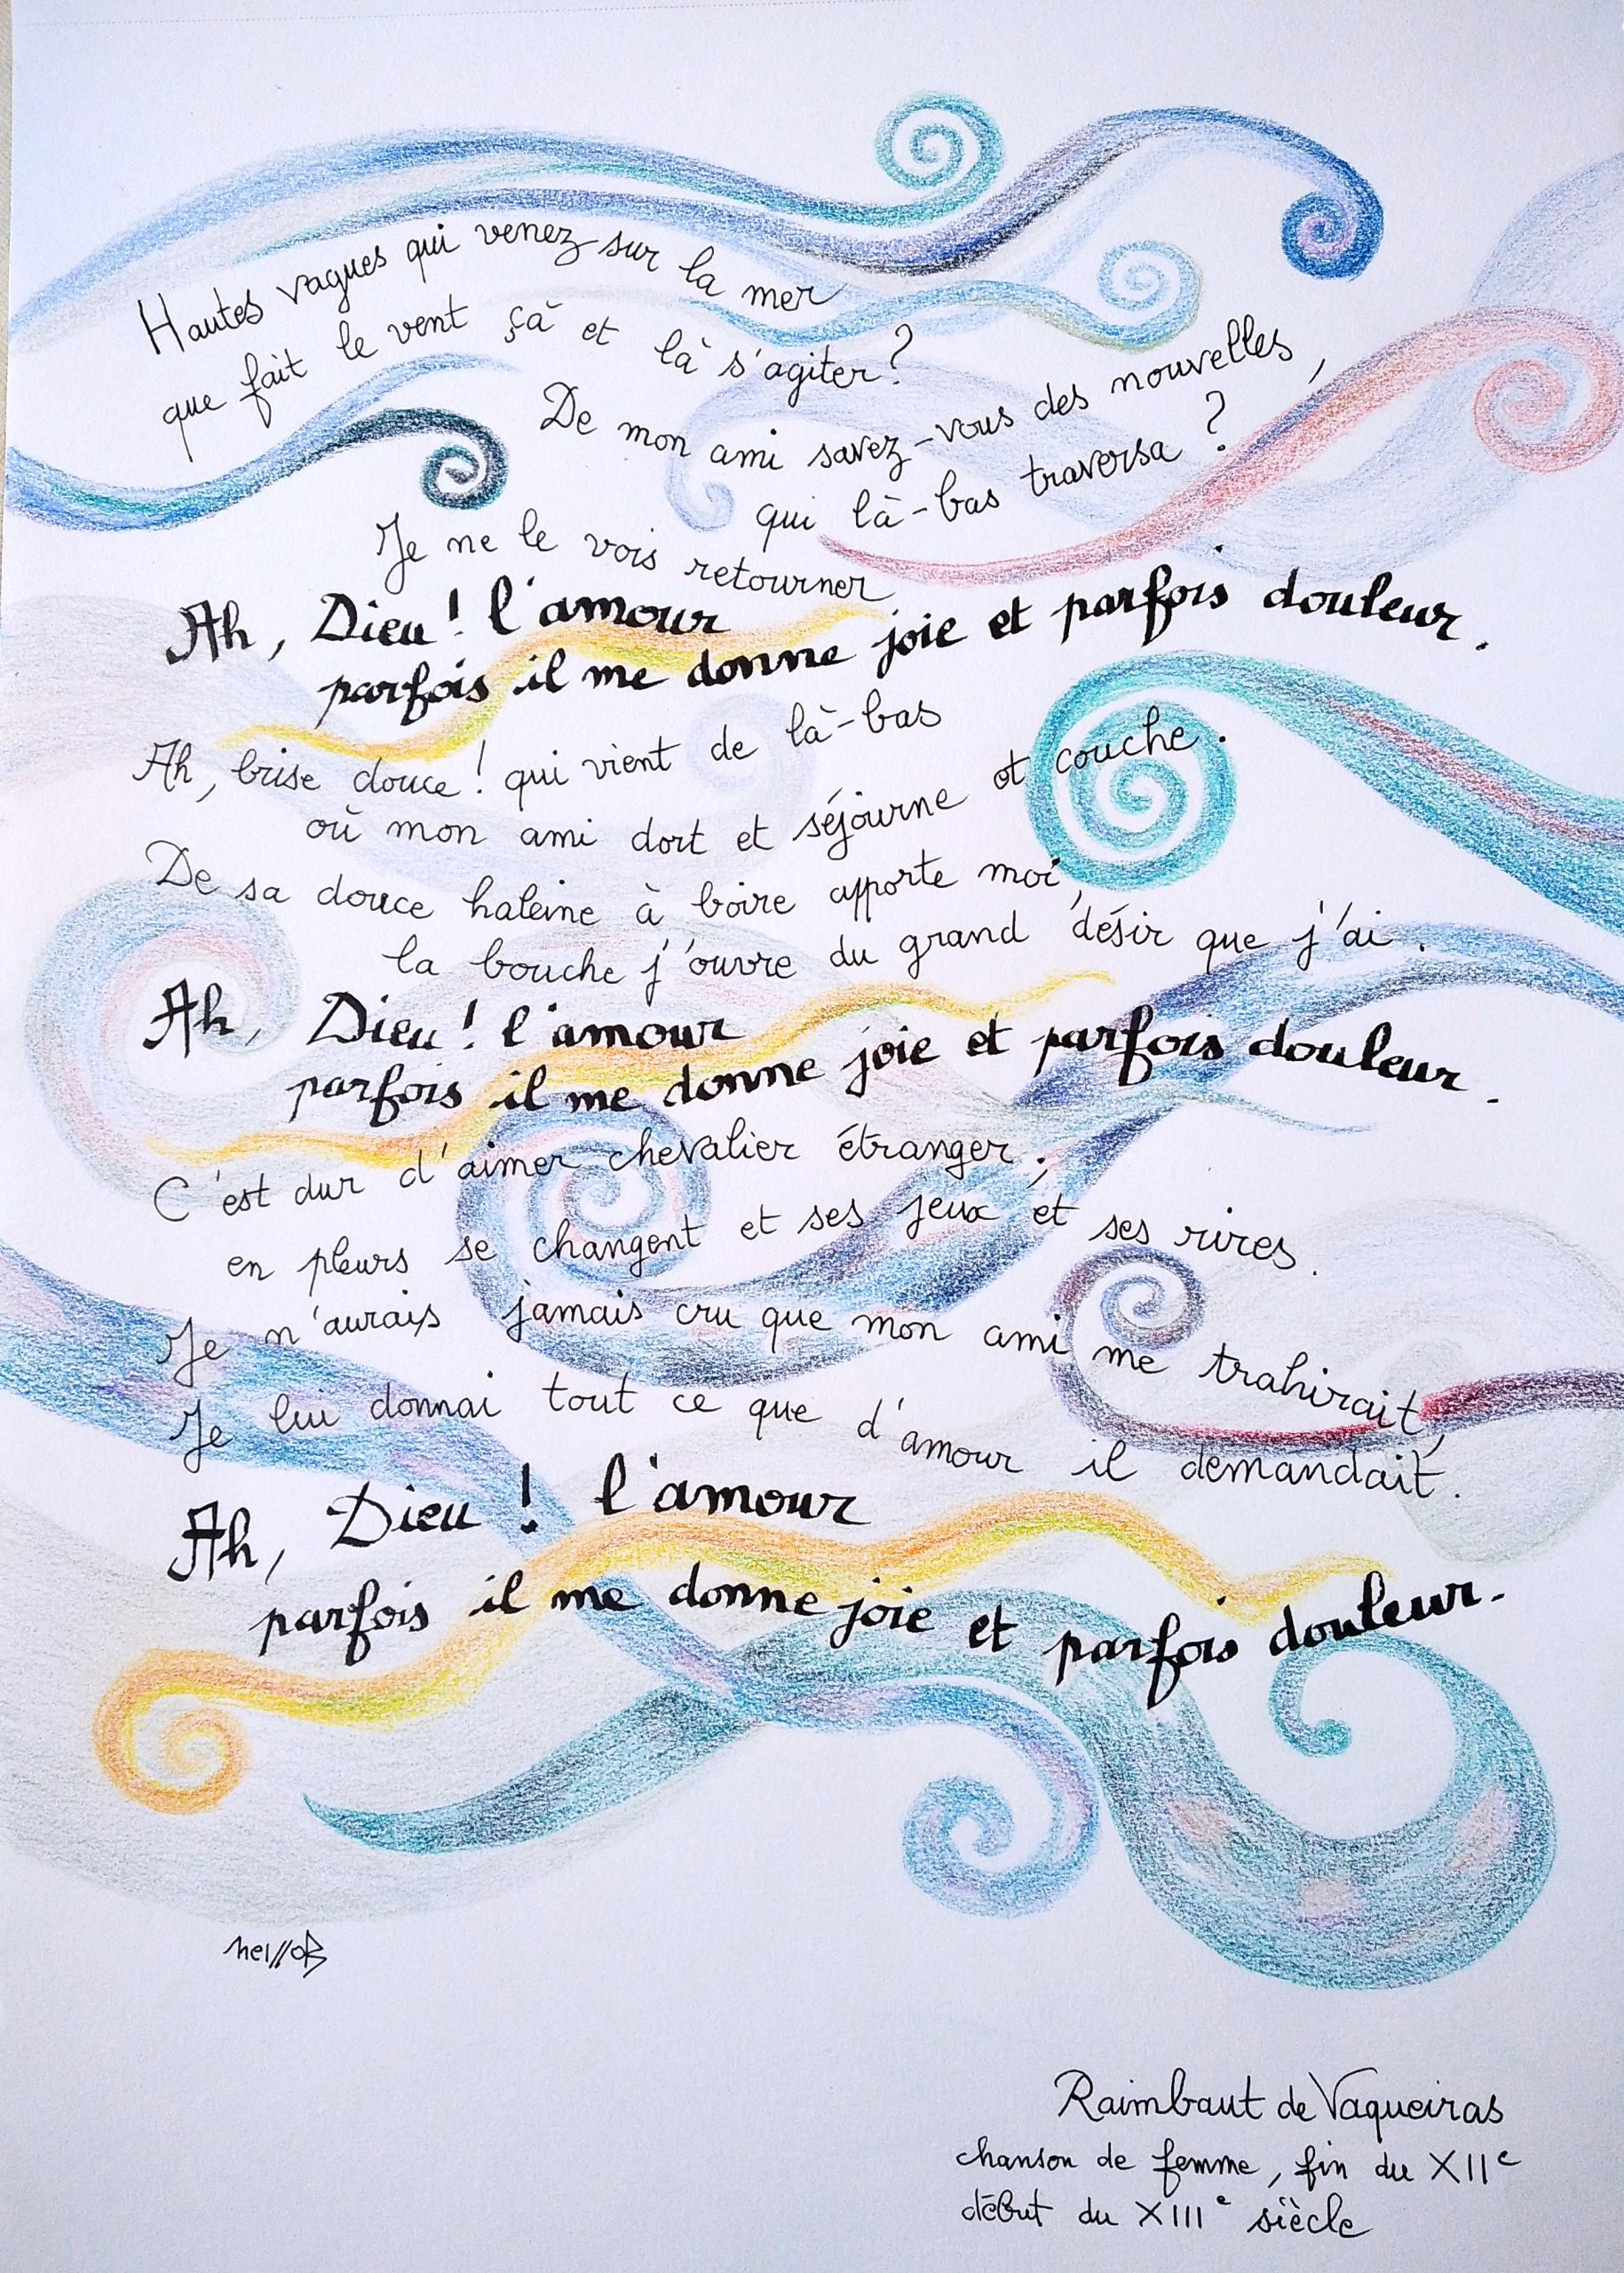 Hautes vagues qui venez sur la mer
que fait le vent çà et là s'agiter ?
De mon ami savez-vous des nouvelles,
qui là-bas traversa ?
Je ne le vois retourner
Ah, Dieu ! l'amour
parfois il me donne joie et parfois douleur.
Ah, brise douce ! qui vient de là-bas
où mon ami dort et séjourne et couche.
De sa douce haleine à boire apporte moi,
la bouche j'ouvre du grand désir que j'ai.
Ah, Dieu ! l'amour
parfois il me donne joie et parfois douleur.
C'est dur d'aimer chevalier étranger,
en pleurs se changent et ses jeux et ses rires.
Je n'aurais jamais cru que mon ami me trahirait,
Je lui donnai tout ce que d'amour il demandait.
Ah, Dieu ! l'amour
parfois il me donne joie et parfois douleur.
Raimbaut de Vaqueiras
chanson de femme, fin du XIIe
début du XIIIe siècle